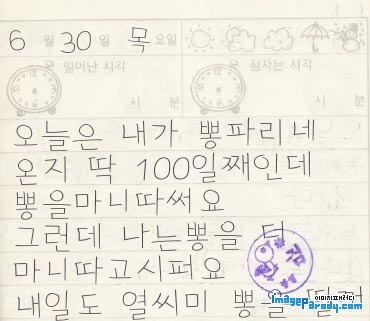 6 월 30 일 목 요일
일어난 시각 잠자는 시각
시 분 시 분
오늘은 내가 뽕파리네
온지 딱 100일째인데
뽕을마니따써요
그런데 나는뽕을 더
마니따고시퍼요
내일도 열씨미 뽕을
이미지패러디
ImageParody.com